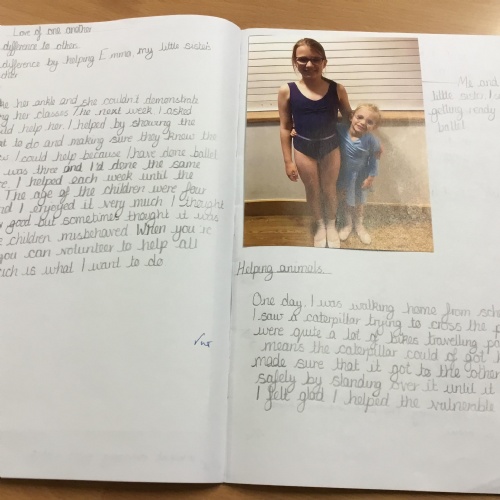 Love of one another
difference to other
difference by helping Emma, my little sister's
her ankle and she couldn't demonstrate
ing her classes. The next week I asked
help her. I helped by showing the
to do and making sure they knew the
I could help because I have done ballet
was three and I'd done the same
I helped each week until the
The age of the children were four
nd I enjoyed it very much. I thought
good but sometimes thought it was
children misbehaved. When you're
you can volunteer to help all
is what I want to do
Me and
little sister,
getting ready
ballet
Helping animals
One day, I was walking home from sch
I saw a caterpillar trying to cross the p
were quite a lot of bikes travelling pa
means the caterpillar could of got
made sure that it got to the other
safely by standing over it until it
I felt glad I helped the vulnerable